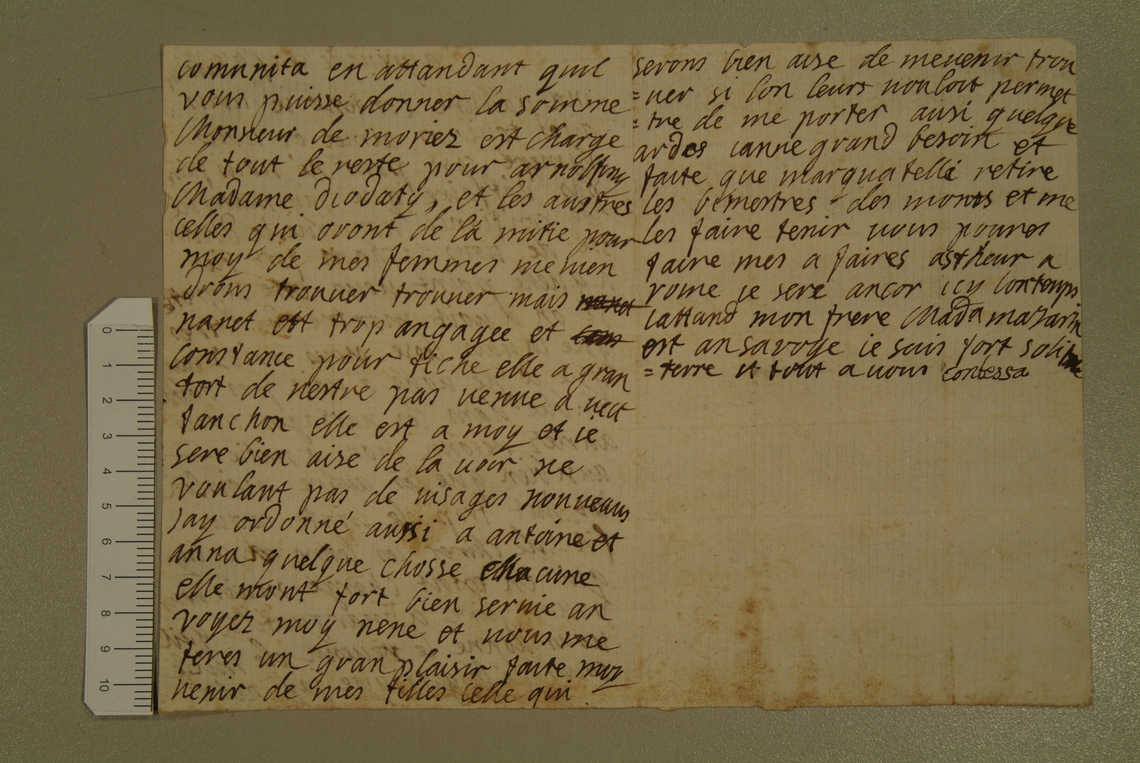 comunita en attandant quil
vous puisse donner la somme
Monsieur de moriez est charge
de tout le reste pour arnolfiny
Madame Diodaty, et les austres
celles qui oront de la mitie pour
moy de mes femmes me uien
drons trouuer trouuer mais nanet
nanet est trop angagee et cons
constance pour fiche elle a gran
tort de nestre pas venue a vect
fanchon elle est a moy et ie
sere bien aise de la uoir ne
voulant pas de uisages nouueaus
Jay ordonné aussi a antoine et
anna quelque chosse chacune
elle mont fort bien seruie an
voyez moy nene et uous me
feres un gran plaisir faite moy
uenir de mes filles celle qui
serons bien aise de meuenir trou
=uer si lon leurs uouloit permet
=tre de me porter ausi quelque
ardes ianne grand besoin et
faite que marquatelli retire
les bimestres des monts et me
les faire tenir uous poures
faire mes a faires astheur a
rome je sere ancor icy lontemps
iattand mon frere Mada mazarin
est ansavoye ie suis fort soli
=terre et tout a uous contessa